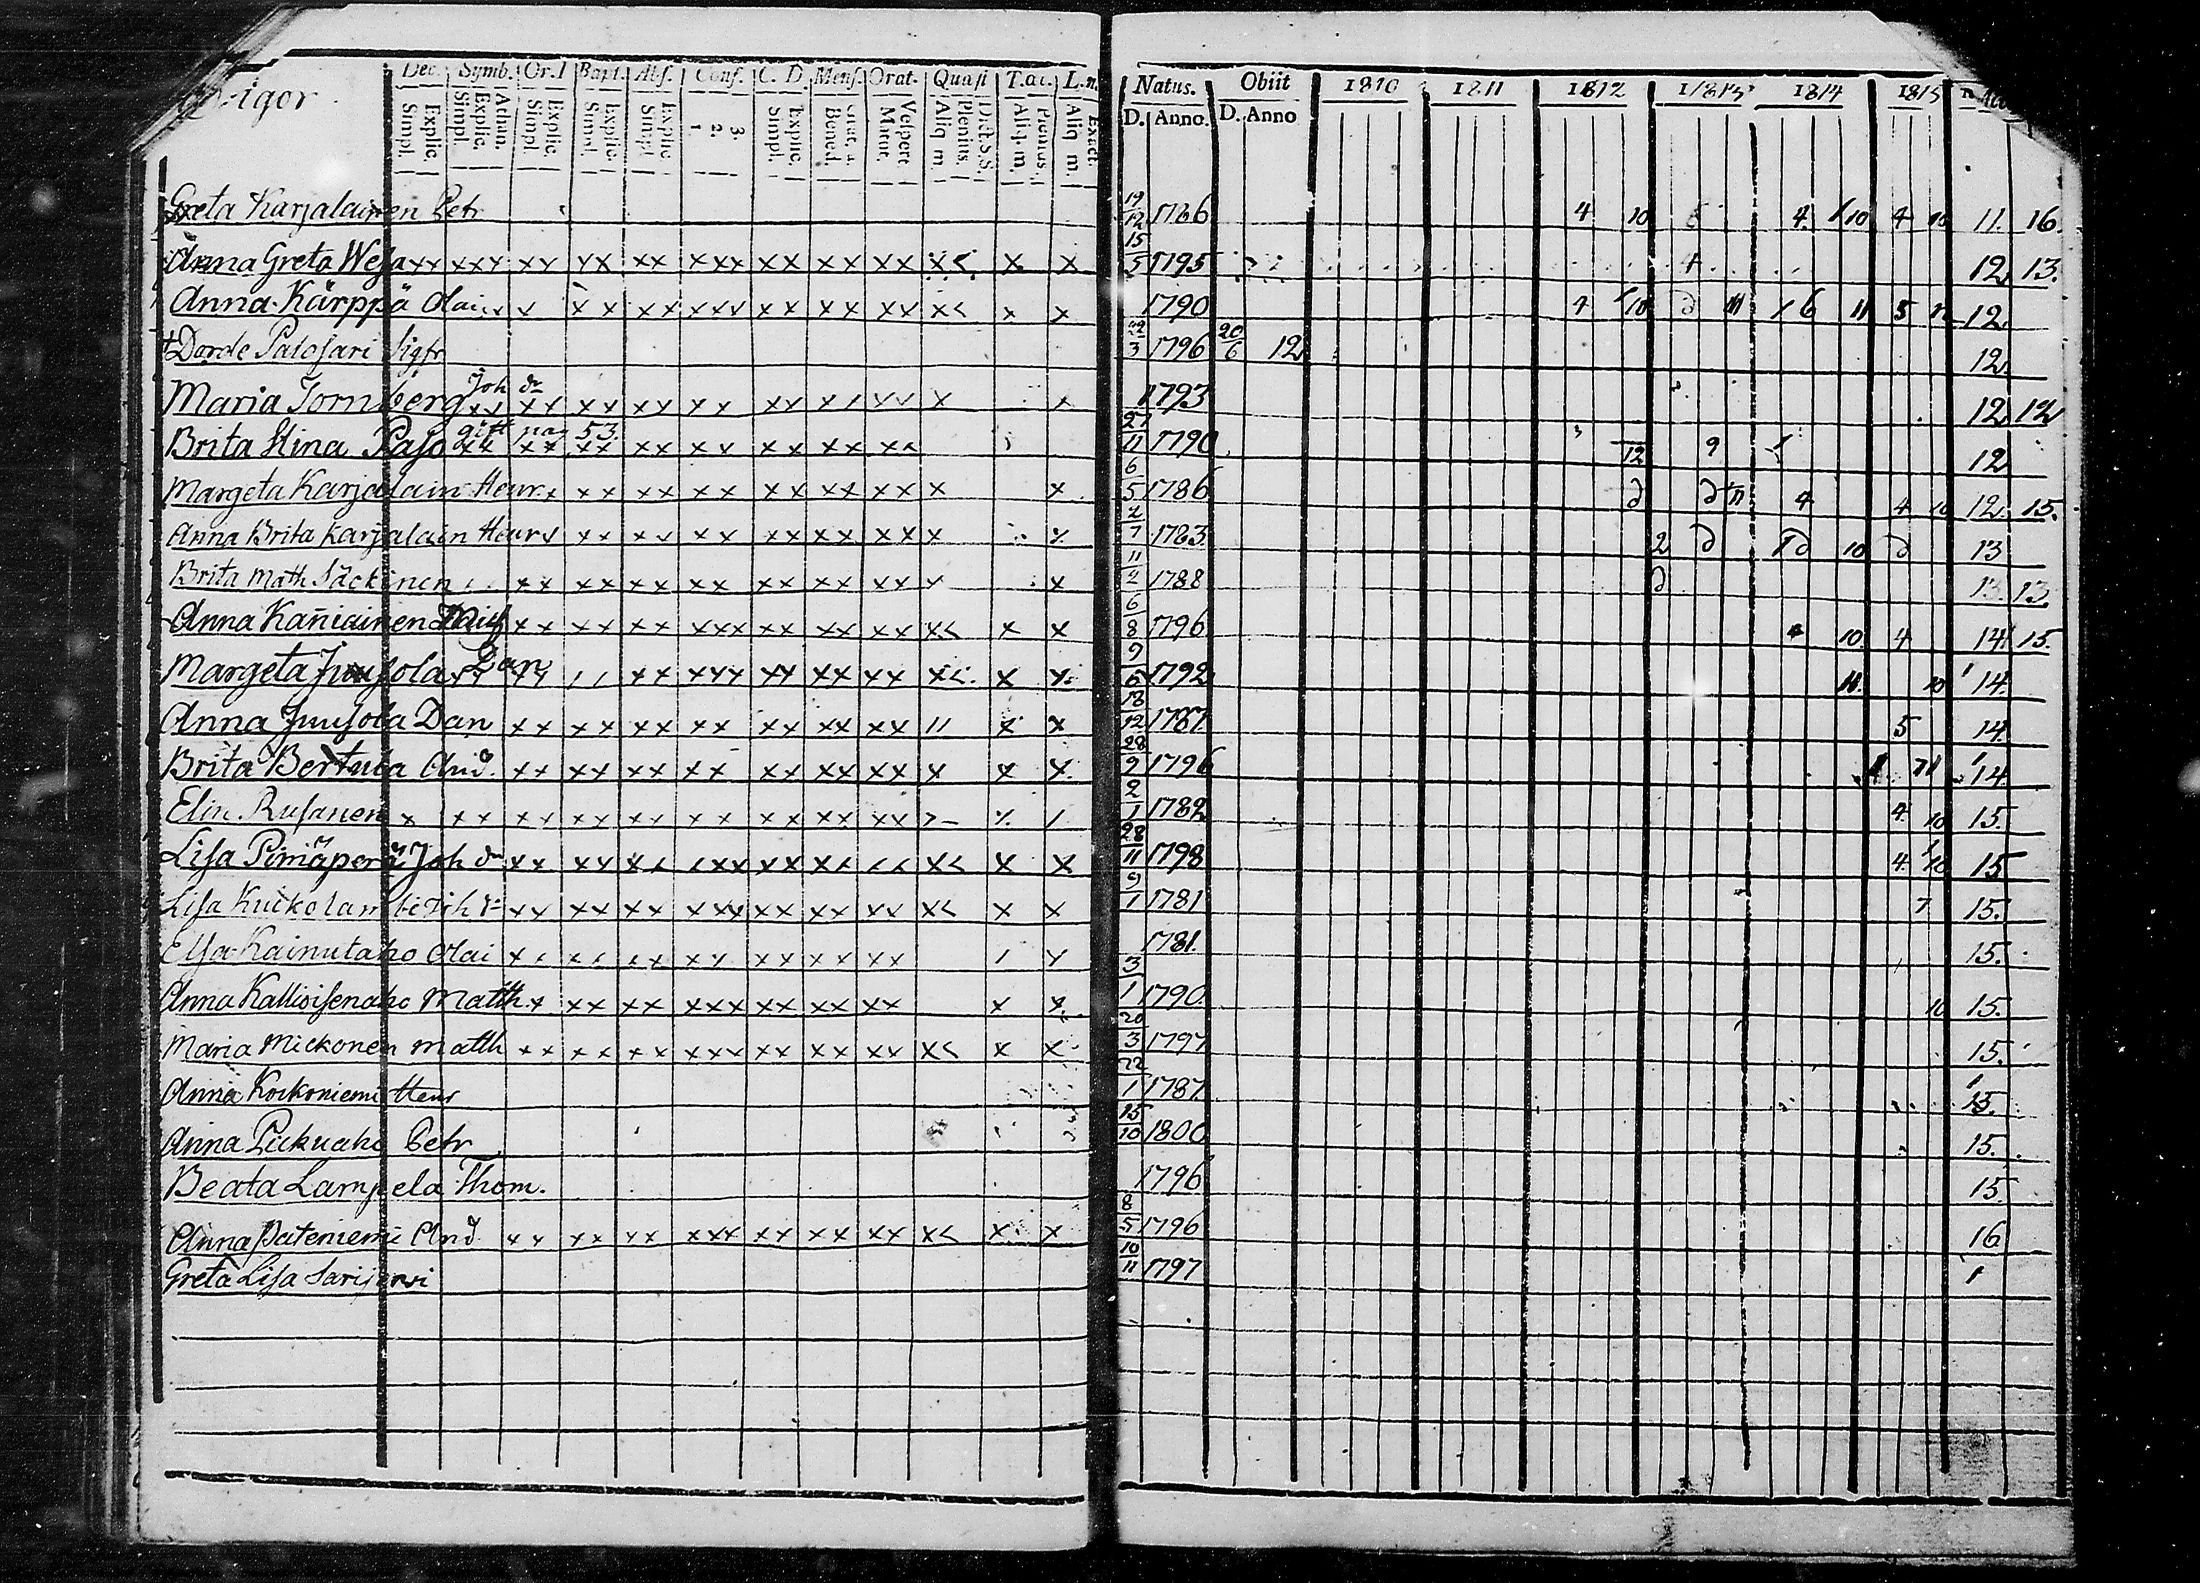 Dec. Symb. Or. Bapt. Abs. Conf. C. D. Mens. Orat. Quasi T.ac. L.n. Natus. Obiit 1810 1811 1812 1813 1814 1815
Explic. Simpl. Athan. Explic. Simpl. Explic. Simpl. Explic. Simpl. Explic. Simpl. 3. 2. 1 Explic. Simpl. Bened. Vespert. Matut. Dict. S. S. Plenius. Aliq. m. Plenius. Aliq. m. Exact. Aliq. m. D. Anno. D. Anno
Greta Karjalainen Petr 19/12 1786 4 10 4 10 4 10 11. 16.
Anna Greta Wesa xx xxx xx xx xx xxx xx xx xx x< x x 15/5 1795 12 13.
Anna Kärppä Olai x x x xx xxx xx xx xx x< x x 1790 4 10 11 6 11 5 12.
† Dorde Palosari Sigfr 22/3 1796 20/6 12 12.
Maria Tornberg Joh dr xx xx xx xx xx xx xx x 1793 12 12
Brita Stina Paso gift pag 53. xx xx xx xx xx xx xx xx 27/11 1790 12 9 12
Margeta Karjalain Henr x xx xx xx xx xx xx x x 6/5 1786 11 4 4 10 12. 15.
Anna Brita Karjalain Henr xx xx xx xx xx xx x 2/7 1783 2 10 13
Brita Math Säckinen xx xx xx xx xx xx xx x 11/2 1788 13. 13.
Anna Kan̄iainen xx xx xx xxx xx xx xx x< x x 6/8 1796 4 10 4 14 15.
Margeta Juusola Dan xx xx xx xxx xx xx xx x< x x 9/6 1792 11. 10 14.
Anna Juusola Dan xx xx xx xx xx xx xx x x 18/12 1787 5 14
Brita Bertula And. xx xx xx xx xx xx xx x x x 28/9 1796 11 14.
Elin Rusanen x xx xx xx xx xx xx xx xx 2/1 1782 4 10 15.
Lisa Pirnäperä Joh dr xx xx xx xxx xx xx x< x x 28/11 1798 4. 10 15
Lisa Kuickolambi Joh dr xx xx xx xxx xx xx xx x< x x 9/1 1781 7 15.
Elsa Kainutaho Olai xx xx xx xx xx xx xx 1781. 15.
Anna Kallioisenaho Matth x xx xx xxx xx xx xx x x 3/1 1790 10 15.
Maria Mickonen Matth xx xx xx xxx xx xx xx x< x x 20/3 1797 15.
Anna Koskoniemi Henr 22/1 1787 15.
Anna Pukuaho Petr 15/10 1800 15.
Beata Lampela Thom. 1796 15.
Anna Pateniemi And. xx xx xx xxx xx xx xx x< x x 8/5 1796 16
Greta Lisa Sarijervi 10/11 1797